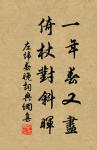 一年春又盡
倚杖對斜暉
左緯春晚詞典網集